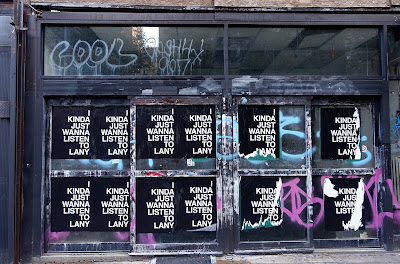 COOL
I
KINDA
JUST
WANNA
LISTEN
TO
LANY
I
KINDA
JUST
WANNA
LISTEN
TO
LANY
I
KINDA
JUST
WANNA
LISTEN
TO
LANY
I
KINDA
JUST
WANNA
LISTEN
TO
LANY
I
KINDA
JUST
WANNA
LISTEN
TO
KINDA
JUST
WANNA
LISTEN
TO
LANY
I
KINDA
JUST
WANNA
LISTEN
TO
LANY
I
KINDA
JUST
WANNA
LISTEN
TO
LANY
I
KINDA
JUST
WANNA
LISTEN
TO
LANY
I
KINDA
JUST
WANNA
LISTEN
TO
LANY
KINDA
JUST
WANNA
LISTEN
TO
KINDA
JUST
WANNA
LISTEN
TO
LANY